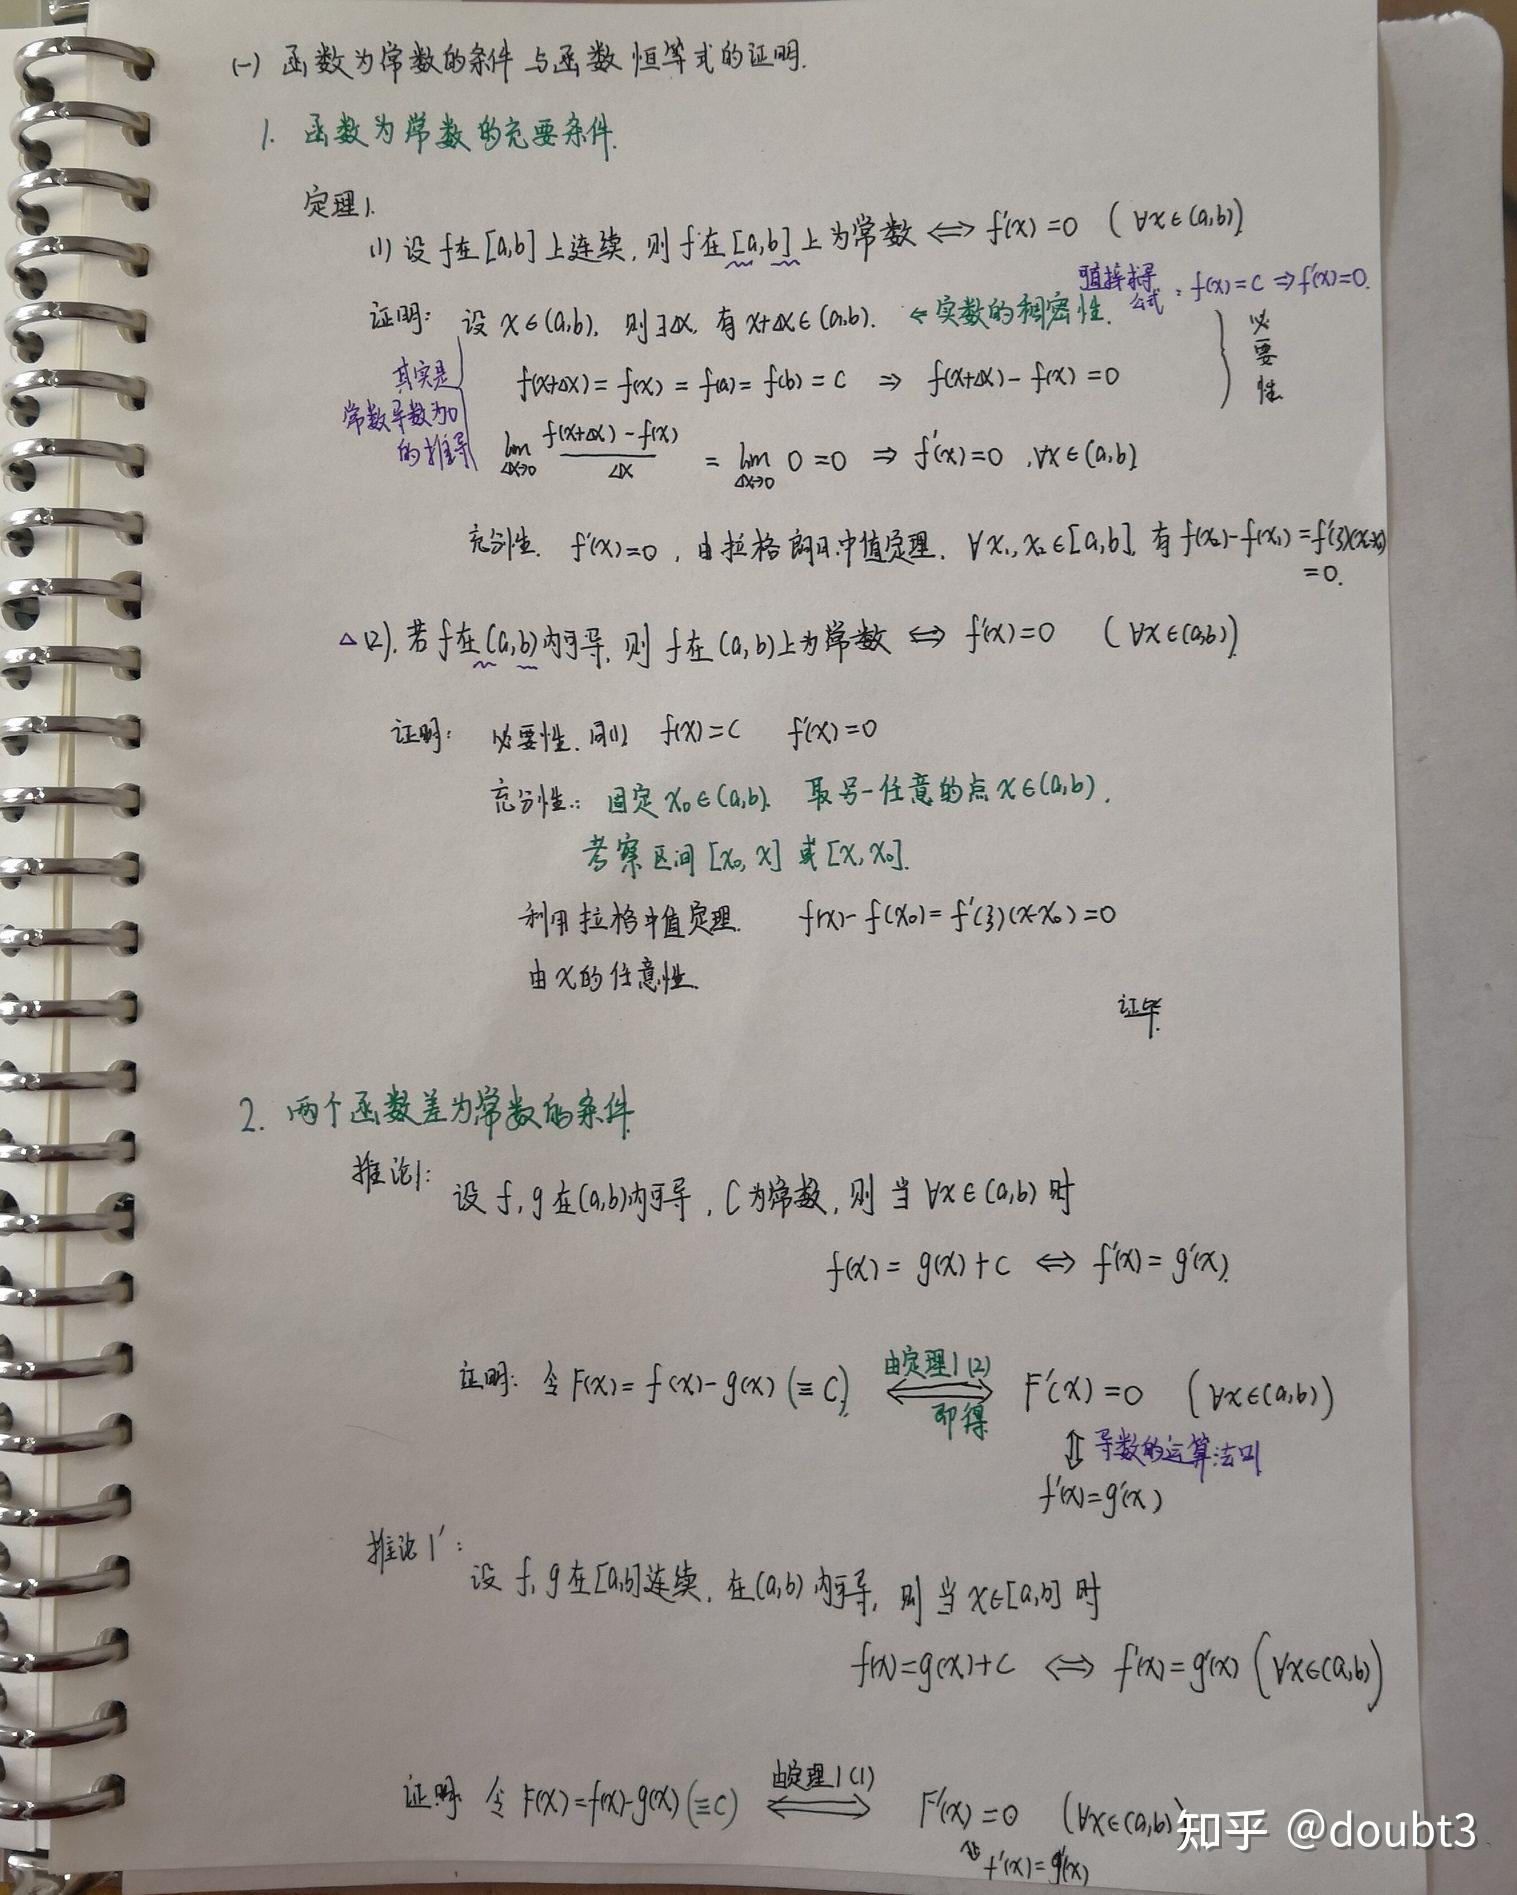 (一) 函数为常数的条件与函数恒等式的证明.
1. 函数为常数的充要条件.
定理1.
(1) 设f在[a,b]上连续,则f在[a,b]上为常数 ⇔ f'(x)=0 (∀x∈(a,b)).
可直接求导公式: f(x)=C ⇒ f'(x)=0.
证明: 设x∈(a,b). 则∃Δx, 有x+Δx∈(a,b). ⇐ 实数的稠密性.
必要性
其实是
常数导数为0
的推导
f(x+Δx)=f(x)=f(a)=f(b)=C ⇒ f(x+Δx)-f(x)=0
lim Δx→0 (f(x+Δx)-f(x))/Δx = lim Δx→0 0=0 ⇒ f'(x)=0, ∀x∈(a,b)
充分性. f'(x)=0, 由拉格朗日中值定理. ∀x₁,x₂∈[a,b], 有f(x₂)-f(x₁)=f'(ξ)(x₂-x₁)
=0.
△(2). 若f在(a,b)内可导, 则f在(a,b)上为常数 ⇔ f'(x)=0 (∀x∈(a,b)).
证明: 必要性. 同(1) f(x)=C f'(x)=0
充分性: 固定x₀∈(a,b). 取另一任意的点x∈(a,b).
考察区间[x₀,x]或[x,x₀].
利用拉格中值定理. f(x)-f(x₀)=f'(ξ)(x-x₀)=0
由x的任意性.
证毕.
2. 两个函数差为常数的条件.
推论1:
设f,g在(a,b)内可导, C为常数, 则当∀x∈(a,b)时
f(x)=g(x)+C ⇔ f'(x)=g'(x).
证明: 令F(x)=f(x)-g(x)(≡C), 由定理1(2) ⇔ 即得 F'(x)=0 (∀x∈(a,b))
⇕ 导数的运算法则
f'(x)=g'(x)
推论1':
设f,g在[a,b]连续, 在(a,b)内可导, 则当x∈[a,b]时
f(x)=g(x)+C ⇔ f'(x)=g'(x) (∀x∈(a,b))
证明: 令F(x)=f(x)-g(x)(≡C) 由定理1(1) ⇔ F'(x)=0 (∀x∈(a,b))
⇕ f'(x)=g'(x)
知乎 @doubt3